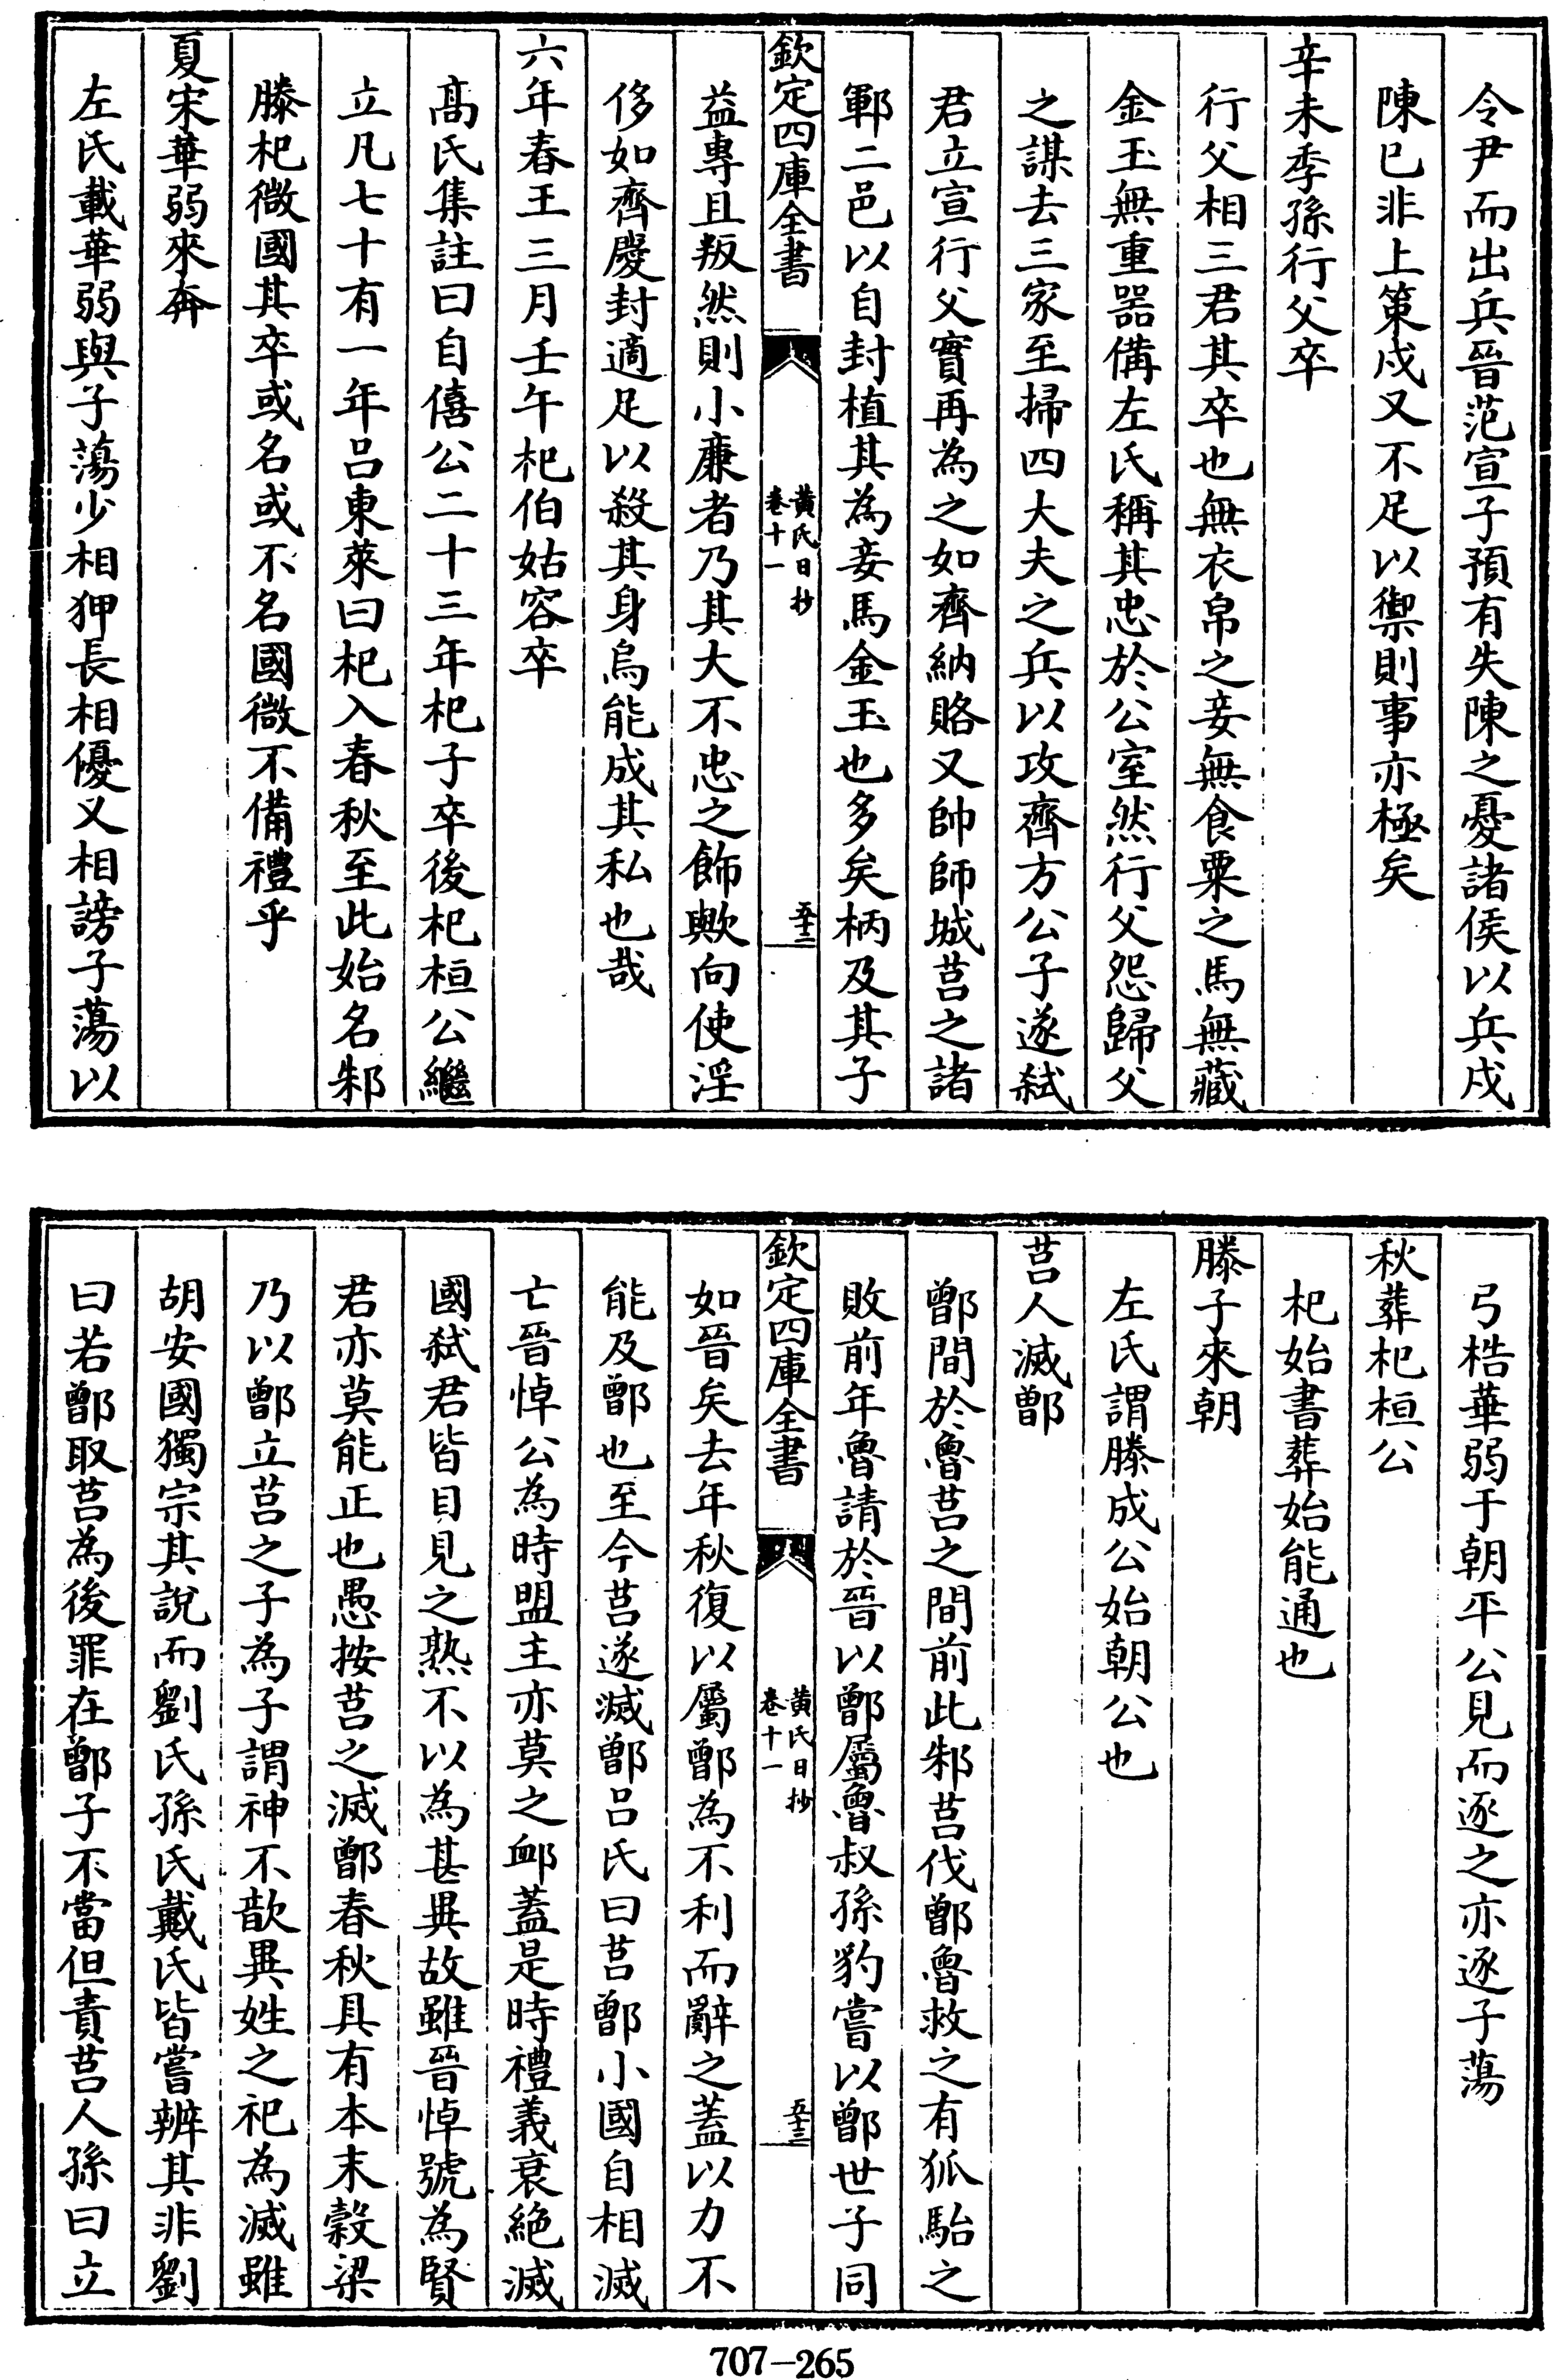 令尹而出兵晉范宣子預有失陳之憂諸侯以兵戍
陳已非上策戍又不足以禦則事亦極矣
辛未季孫行父卒
行父相三君其卒也無衣帛之妾無食粟之馬無藏
金玉無重器備左氏稱其忠於公室然行父怨歸父
之謀去三家至掃四大夫之兵以攻齊方公子遂弑
君立宣行父實再為之如齊納賂又帥師城莒之諸
鄆二邑以自封植其為妾馬金玉也多矣柄及其子
欽定四庫全書
黄氏日抄
卷十一
五十二
益專且叛然則小廉者乃其大不忠之飾歟向使淫
侈如齊慶封適足以殺其身烏能成其私也哉
六年春王三月壬午杞伯姑容卒
高氏集註曰自僖公二十三年杞子卒後杞桓公繼
立凡七十有一年吕東萊曰杞入春秋至此始名邾
滕杞微國其卒或名或不名國微不備禮乎
夏宋華弱來奔
左氏載華弱與子蕩少相狎長相優又相謗子蕩以
弓梏華弱于朝平公見而逐之亦逐子蕩
秋葬杞桓公
杞始書葬始能通也
滕子來朝
左氏謂滕成公始朝公也
莒人滅鄫
鄫間於魯莒之間前此邾莒伐鄫魯救之有狐駘之
敗前年魯請於晉以鄫屬魯叔孫豹嘗以鄫世子同
欽定四庫全書
黄氏日抄
卷十一
五十三
如晉矣去年秋復以屬鄫為不利而辭之蓋以力不
能及鄫也至今莒遂滅鄫吕氏曰莒鄫小國自相滅
亡晉悼公為時盟主亦莫之䘏蓋是時禮義衰絶滅
國弑君皆目見之熟不以為甚異故雖晉悼號為賢
君亦莫能正也愚按莒之滅鄫春秋具有本末穀梁
乃以鄫立莒之子為子謂神不歆異姓之祀為滅雖
胡安國獨宗其說而劉氏孫氏戴氏皆嘗辨其非劉
曰若鄫取莒為後罪在鄫子不當但責莒人孫曰立
707—265